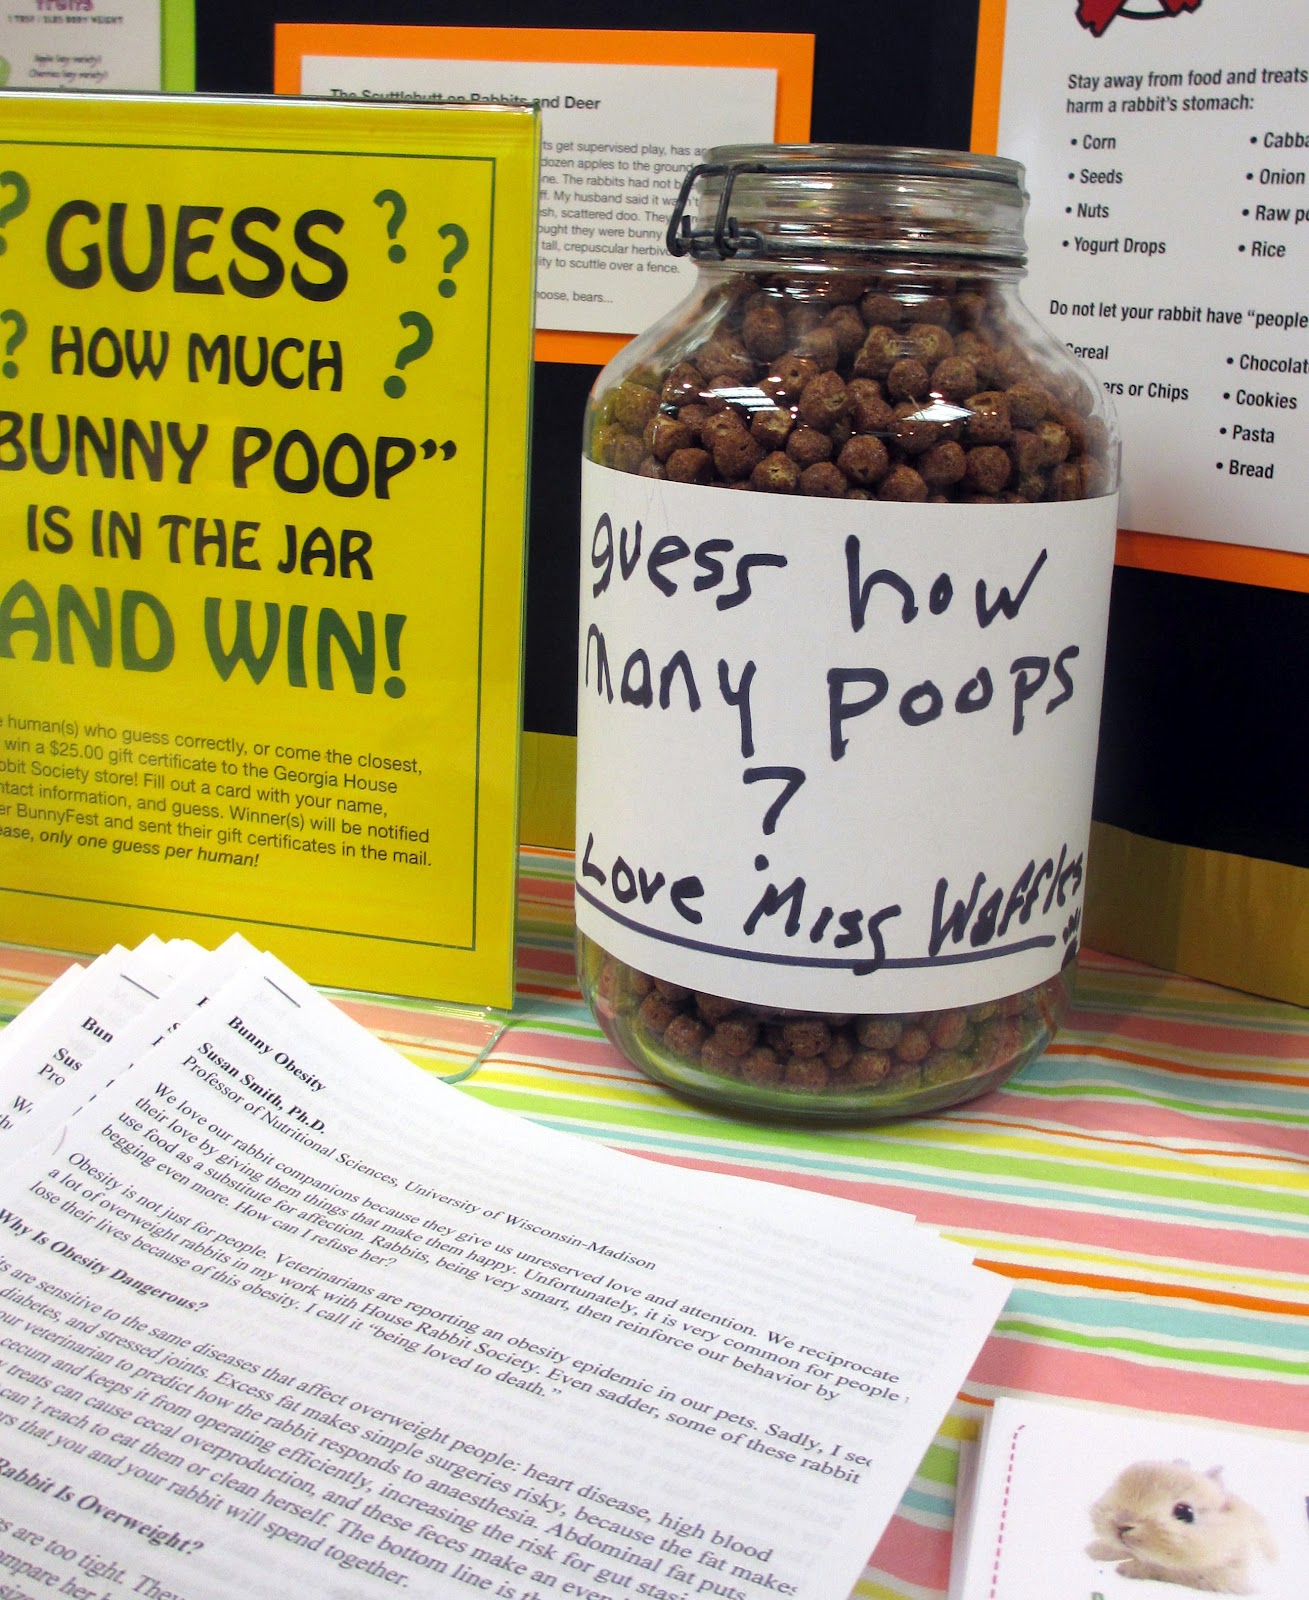 fruits
1 TBSP / 5LBS BODY WEIGHT
Apple (any variety)
Cherries (any variety)
? GUESS ? ?
? HOW MUCH ?
BUNNY POOP”
IS IN THE JAR
AND WIN!
human(s) who guess correctly, or come the closest,
win a $25.00 gift certificate to the Georgia House
Society store! Fill out a card with your name,
information, and guess. Winner(s) will be notified
BunnyFest and sent their gift certificates in the mail.
only one guess per human!
The Scuttlebutt on Rabbits and Deer
get supervised play, has
dozen apples to the ground
The rabbits had not
My husband said it
scattered doo. They
they were bunny
tall, crepuscular
to scuttle over a fence.
bears...
Stay away from food and treats
harm a rabbit's stomach:
• Corn
• Seeds
• Nuts
• Yogurt Drops
• Onion
• Raw
• Rice
Do not let your rabbit have “people
or Chips
• Cookies
• Pasta
• Bread
guess how
many poops
?
Love Miss Waffles
Bunny Obesity
Susan Smith, Ph.D.
Professor of Nutritional Sciences, University of Wisconsin-Madison
We love our rabbit companions because they give us unreserved love and attention. We reciprocate
their love by giving them things that make them happy. Unfortunately, it is very common for people
use food as a substitute for affection. Rabbits, being very smart, then reinforce our behavior by
begging even more. How can I refuse her?
Obesity is not just for people. Veterinarians are reporting an obesity epidemic in our pets. Sadly, I see
a lot of overweight rabbits in my work with House Rabbit Society. Even sadder, some of these rabbit
lose their lives because of this obesity. I call it “being loved to death.”
Why Is Obesity Dangerous?
are sensitive to the same diseases that affect overweight people: heart disease, high blood
diabetes, and stressed joints. Excess fat makes simple surgeries risky, because the fat makes
your veterinarian to predict how the rabbit responds to anaesthesia. Abdominal fat puts
cecum and keeps it from operating efficiently, increasing the risk for gut
treats can cause cecal overproduction, and these feces make an even
can't reach to eat them or clean herself. The bottom line is
that you and your rabbit will spend together.
Rabbit Is Overweight?
are too tight. They
her